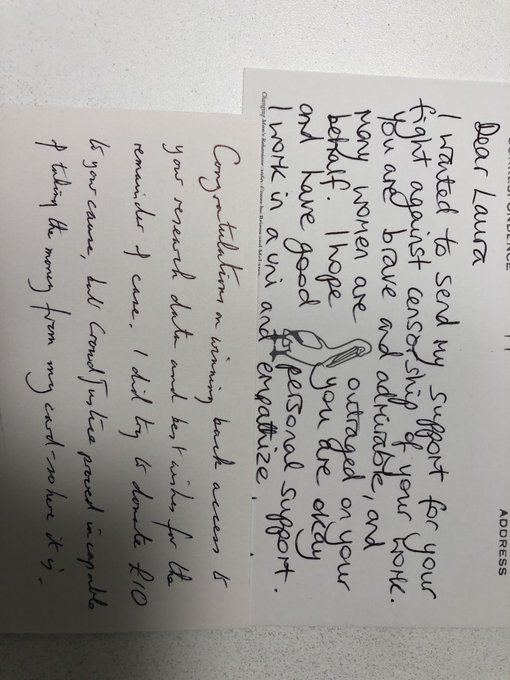 CORRESPONDENCE
ADDRESS
Dear Laura
I wanted to send my support for your
fight against censorship of your work.
You are brave and admirable, and
many women are outraged on your
behalf. I hope you are okay
and have good personal support.
I work in a uni and empathize.
Congratulations on winning back access to
your research data and best wishes for the
remainder of case. I did try to donate £10
to your cause, but CrowdJustice proved incapable
of taking the money from my card – so here it is.